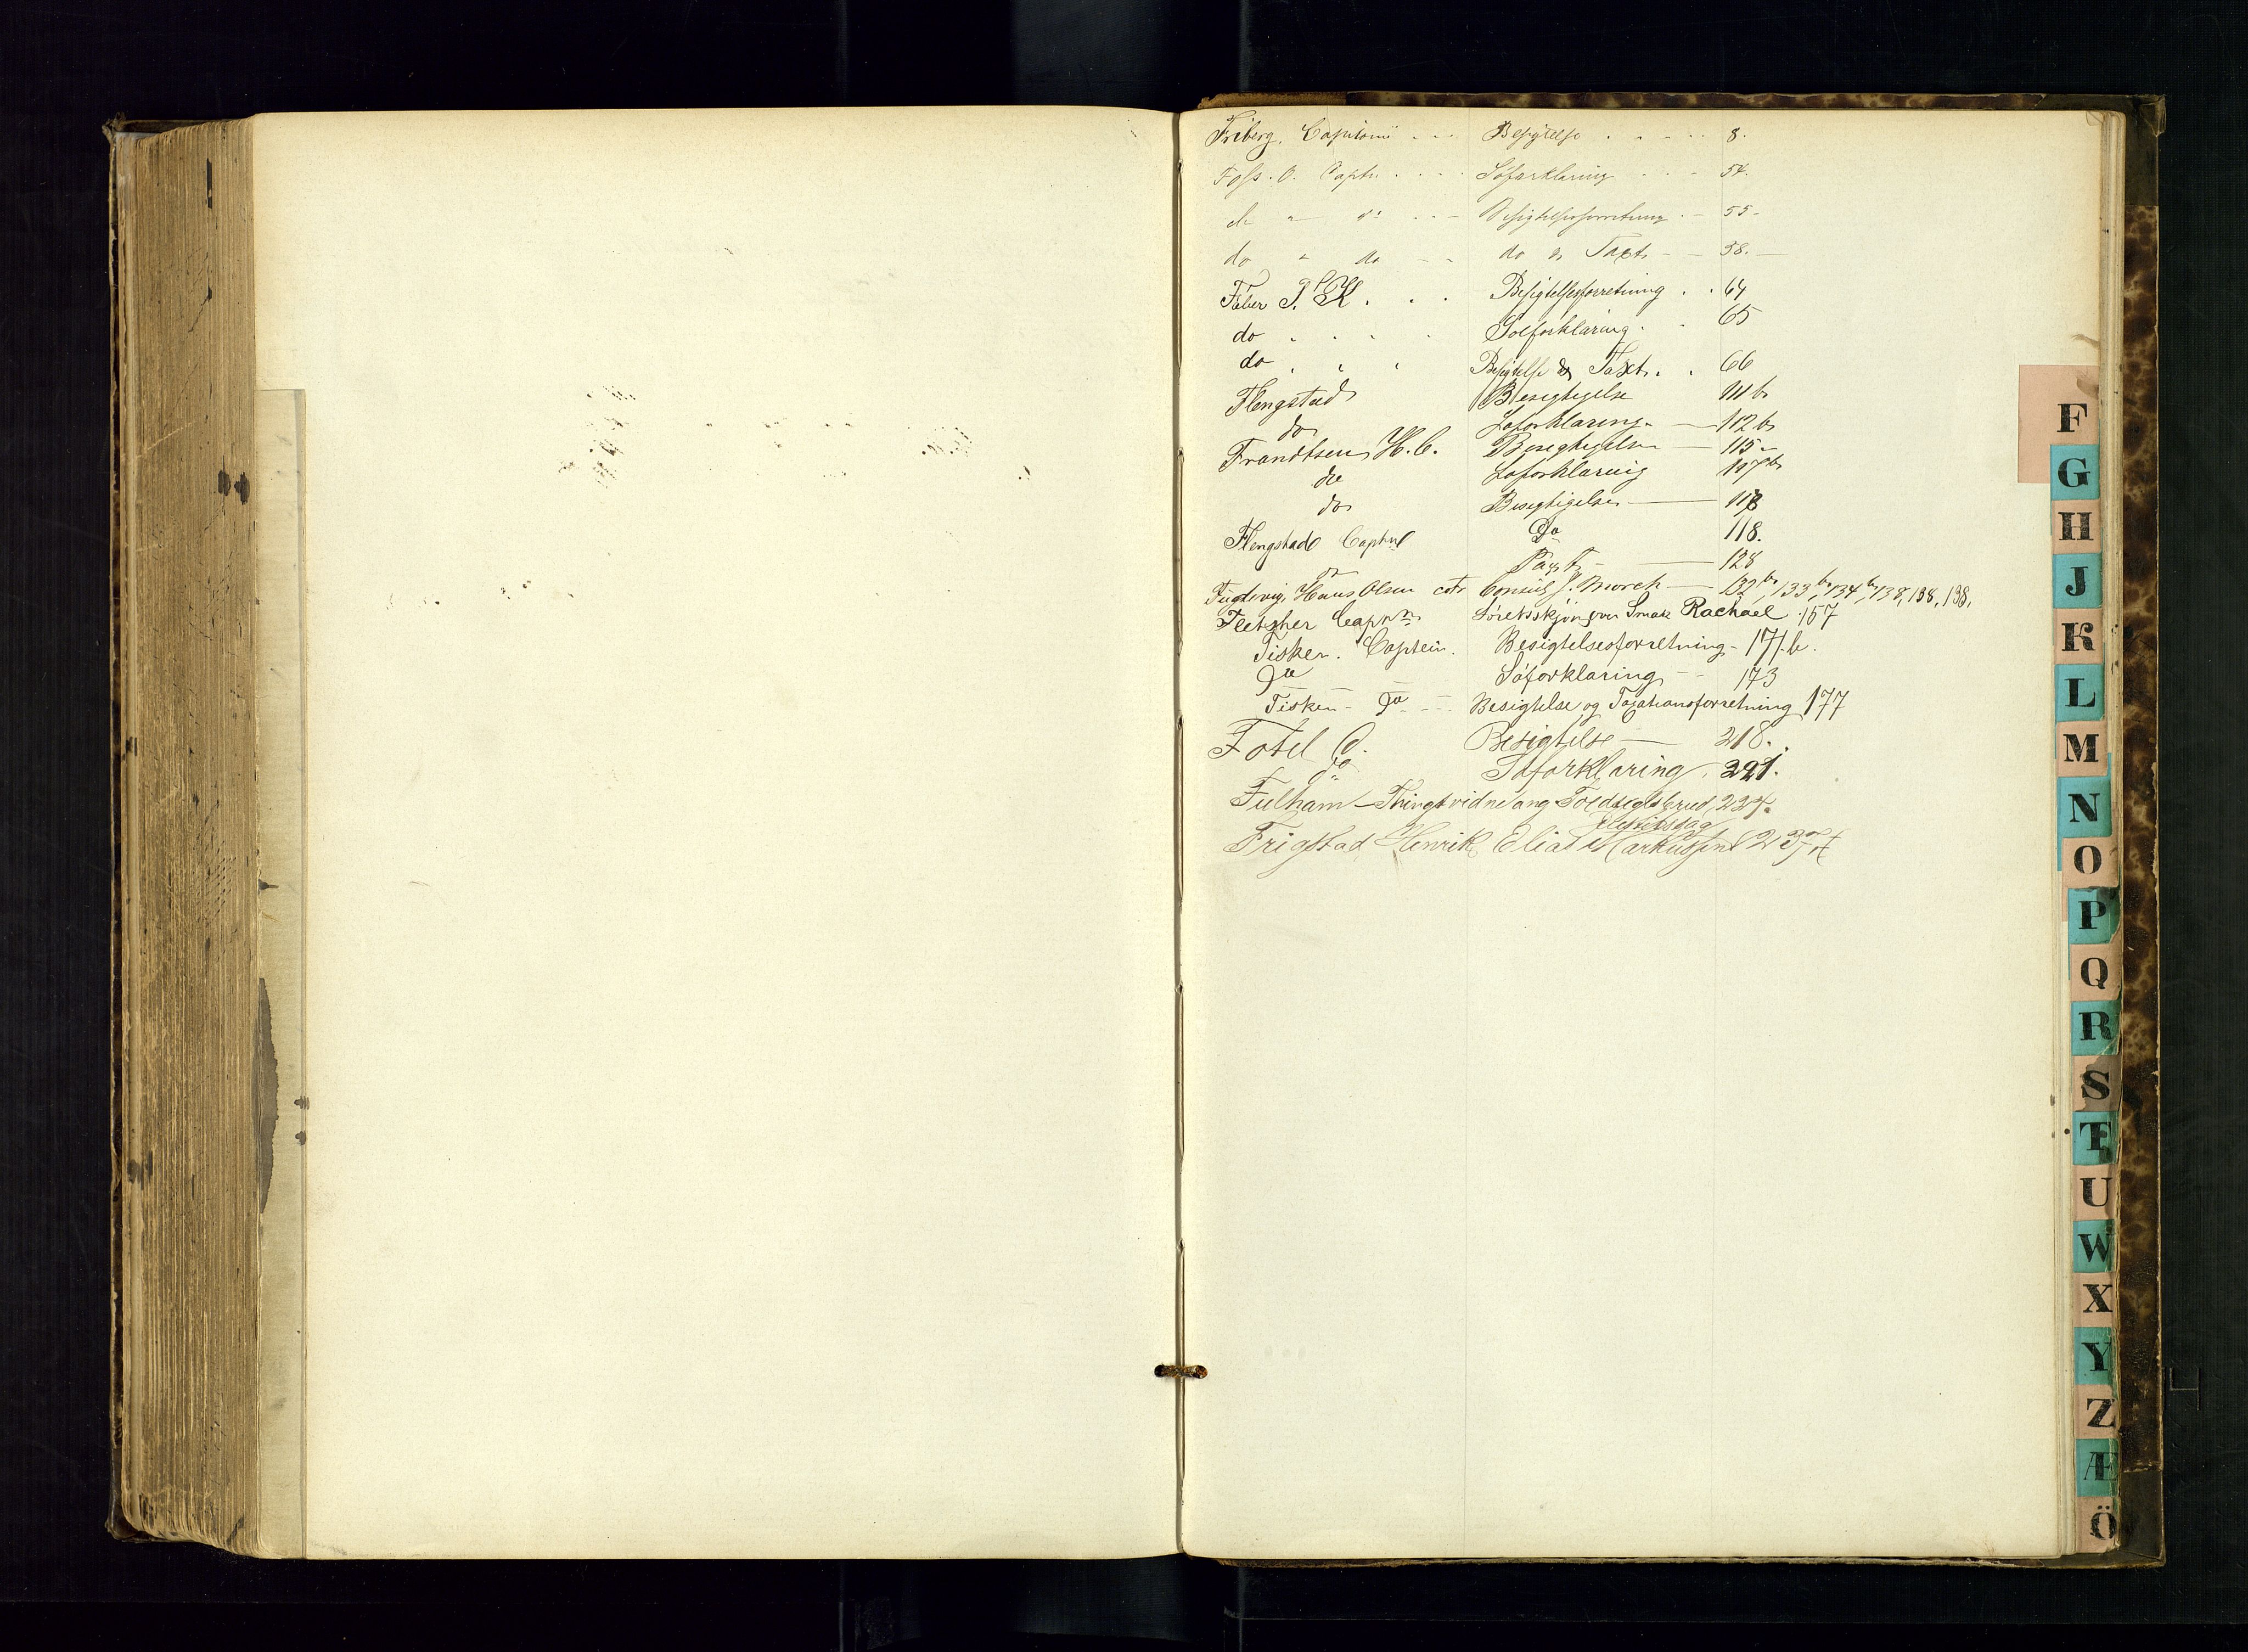 Friberg, Capitain . . . Besigtelse . . . . . 8.
Foss. O. Captn. . . . . Söforklaring . . . 54.
do " do . . . Besigtelsesforretning . - 55-
do " do - - do & Taxt. - - 58. -
Fæber P. K. . . . Besigtelsesforretning . . 64
do . . . . Soeforklaring . . 65
do . . . Besigtelse & Taxt. . . 66
Flengstad Besigtigelse 111 b
do Soforklaring. — 112 b
Frandtsen H. C. Besigtigelse — 115 -
do Soforklaring 117 b
do Besigtigelse — 118
Flengstad Captn Do 118.
do — 128
Fuglevig, Hans Olsen ctr Consul J. Morch — 132 b, 133 b, 134 b, 138, 138, 138,
Fletzher Captn Söretsskjön over Smak Rachael . 157
Fisker. Captein. Besigtelsesforretning - 171. b.
Do Söforklaring - - 173
Fisker - Do - - - Besigtelse og Taxationsforretning 177
Fotel C. Besigtelse — 218.
Do Söforklaring . 221.
Fulham — Thingsvidne ang Toldseglsbrud, 224.
Frigstad Henrik Elias Markussen 237
F
G
H
J
K
L
M
N
O
P
Q
R
S
T
U
W
X
Y
Z
Æ
Ö